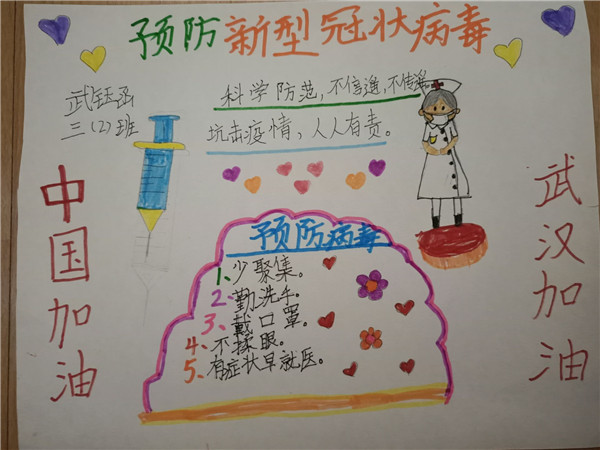 预防新型冠状病毒
武钰函
三(2)班
科学防范,不信谣,不传谣。
坑击疫情,人人有责。
中国加油
武汉加油
预防病毒
1、少聚集。
2、勤洗手。
3、戴口罩。
4、不揉眼。
5、有症状早就医。